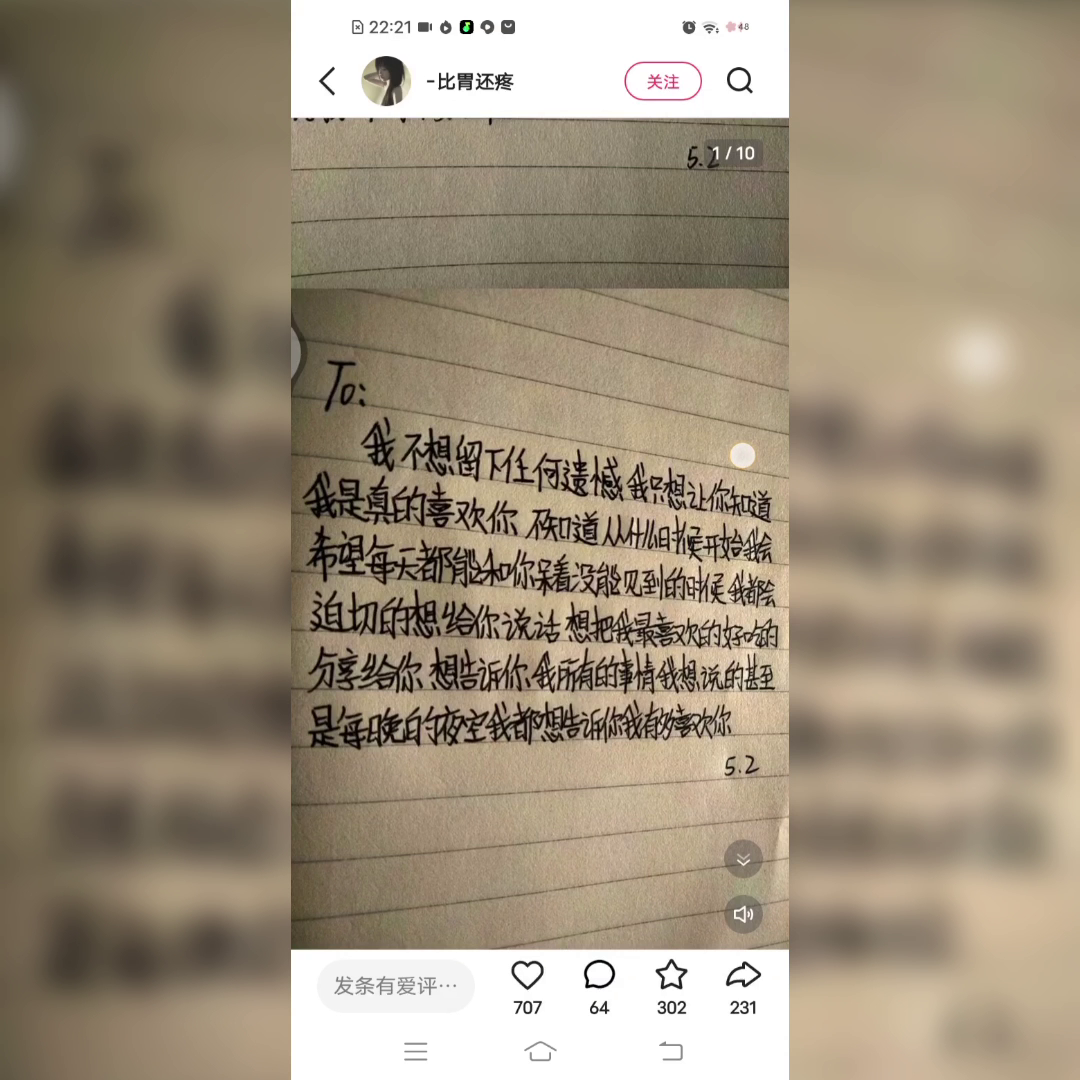 22:21
48
-比胃还疼
关注
5.2
1/10
To:
我不想留下任何遗憾我只想让你知道
我是真的喜欢你 不知道从什么时候开始我会
希望每天都能和你呆着没能见到的时候我都会
迫切的想给你说话 想把我最喜欢的好吃的
分享给你 想告诉你我所有的事情我想说的甚至
是每晚的夜空我都想告诉你我有多喜欢你
5.2
发条有爱评…
707
64
302
231